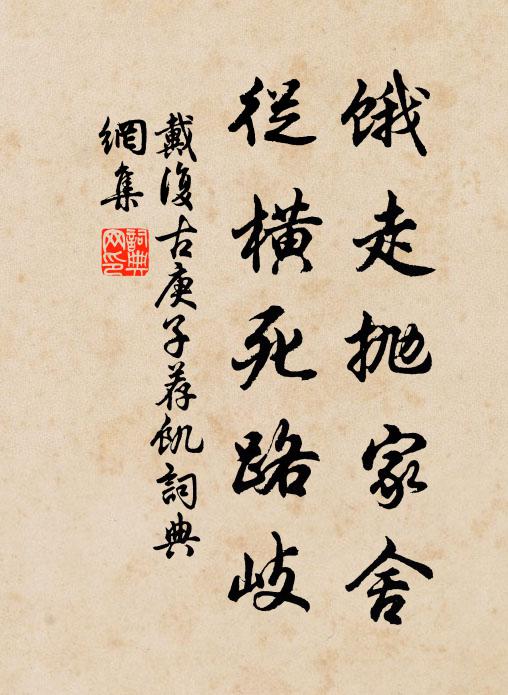 餓走抛家舍
從橫死路岐
戴復古庚子荐飢詞典
網集
詞典
网印